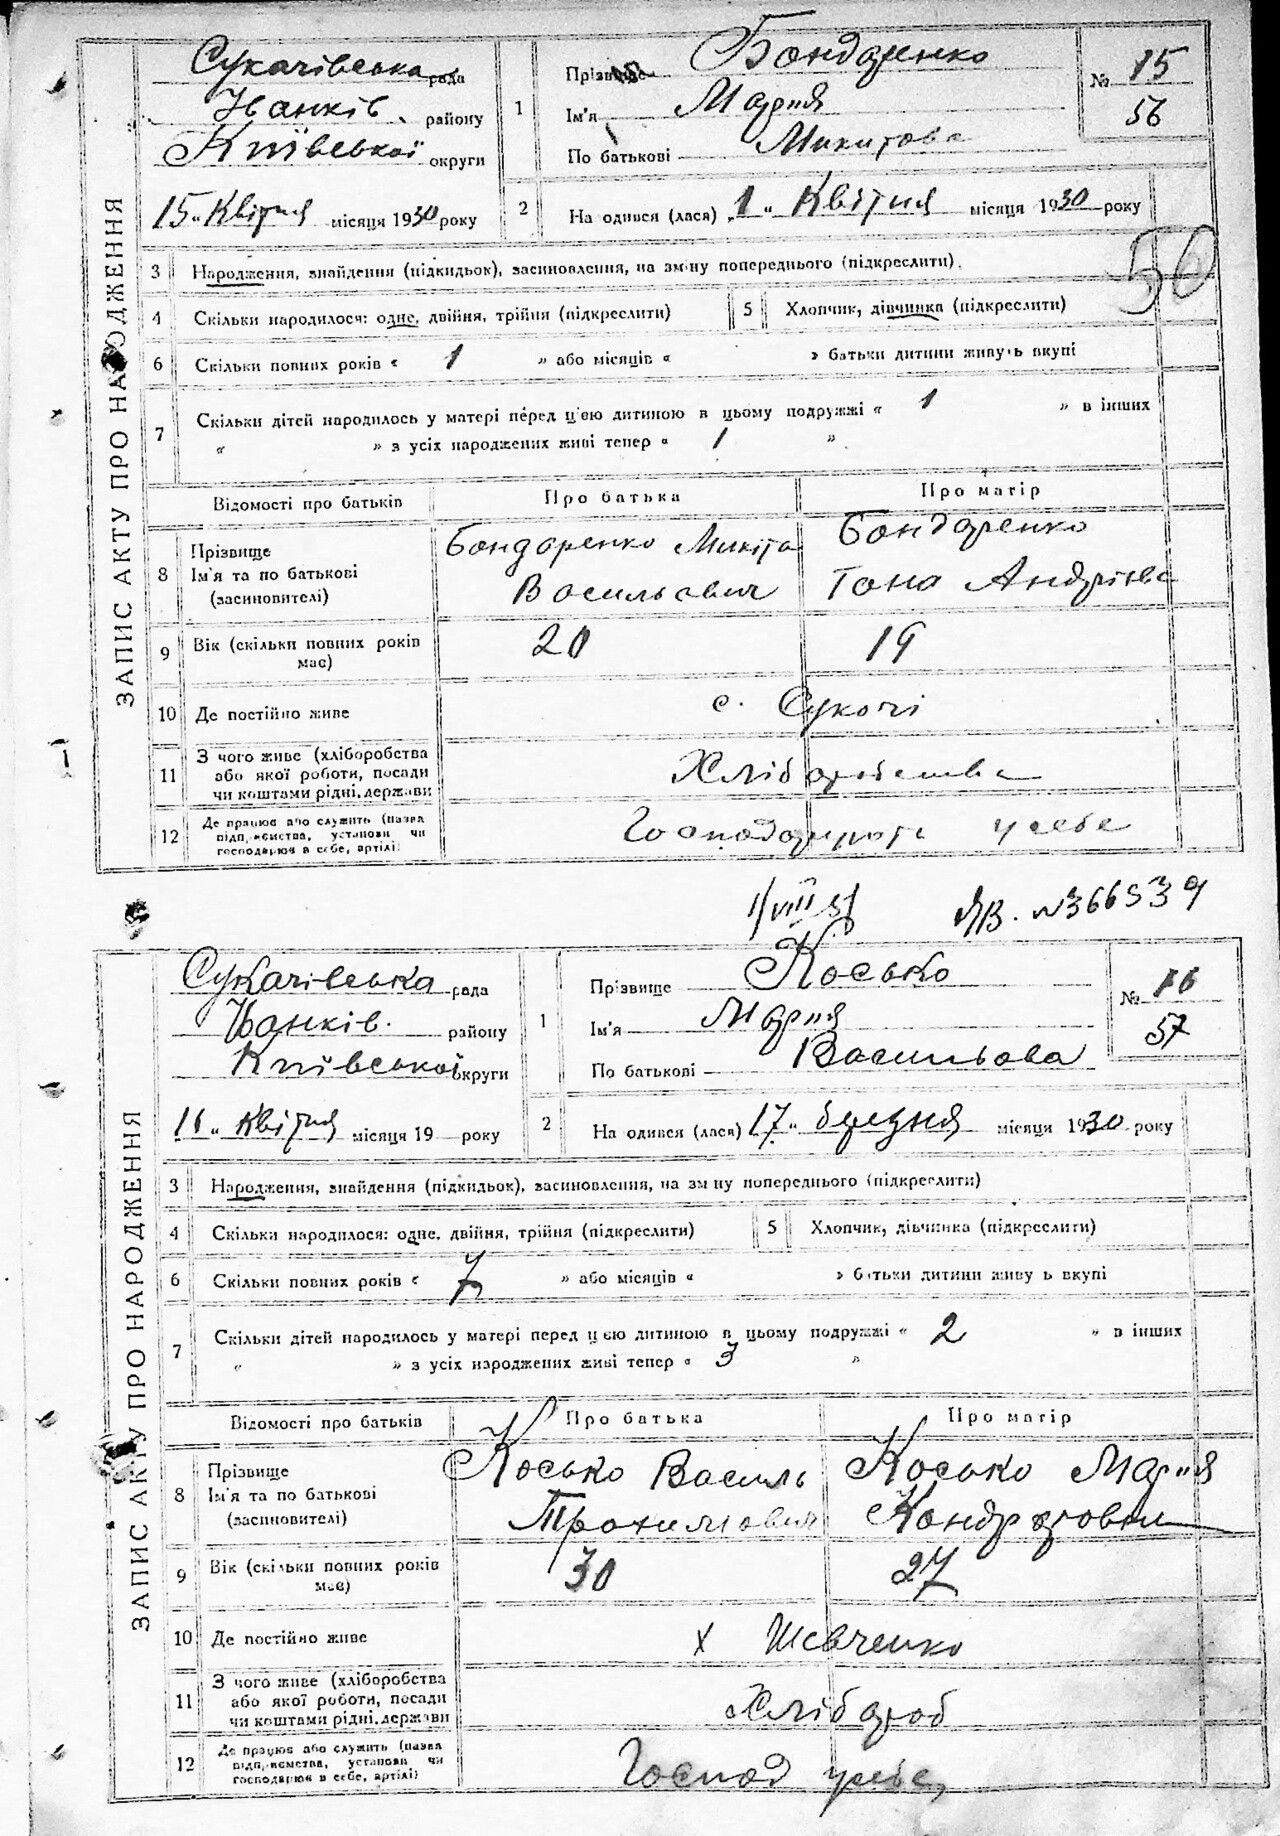 ЗАПИС АКТУ ПРО НАРОДЖЕННЯ
Сукачівська рада
Іванків району
Київської округи
15 „ Квітня місяця 1930 року
1
Прізвище Бондаренко
Ім'я Мария
По батькові Микитова
№ 15
56
2
На одився (лася) „ 1 " Квітня місяця 1930 року
56
3 Народження, знайдення (підкидьок), засиновлення, на зміну попереднього (підкреслити).
4 Скільки народилося: одне, двійня, трійня (підкреслити)
5 Хлопчик, дівчинка (підкреслити)
6 Скільки повних років « 1 » або місяців « » батьки дитини живуть вкупі
7 Скільки дітей народилось у матері перед цею дитиною в цьому подружжі « 1 » в інших
« » з усіх народжених живі тепер « 1 »
Відомості про батьків Про батька Про матір
8 Прізвище
Ім'я та по батькові
(засиновителі)
Бондаренко Микіта
Васильович
Бондаренко
Андріева
9 Вік (скільки повних років
має)
20 19
10 Де постійно живе с. Сукочі
11 З чого живе (хліборобства
або якої роботи, посади
чи коштами рідні, держави
Хліборобства
12 Де працює або служить (назва
підприємства, установи чи
господарює в себе, артілі)
у себе
1/VIII 51 ЯВ. №366539
ЗАПИС АКТУ ПРО НАРОДЖЕННЯ
Сукачівська рада
Іванків. району
Київської округи
16 „ Квітня місяця 19 року
1
Прізвище Косько
Ім'я Мария
По батькові Васильова
№ 16
57
2
На одився (лася) 17 " березня місяця 1930 року
3 Народження, знайдення (підкидьок), засиновлення, на зміну попереднього (підкреслити)
4 Скільки народилося: одне, двійня, трійня (підкреслити)
5 Хлопчик, дівчинка (підкреслити)
6 Скільки повних років « 7 » або місяців « » батьки дитини живуть вкупі
7 Скільки дітей народилось у матері перед цією дитиною в цьому подружжі « 2 » в інших
« » з усіх народжених живі тепер « 3 »
Відомості про батьків Про батька Про матір
8 Прізвище
Ім'я та по батькові
(засиновителі)
Косько Василь
Трохимович
Косько Мария
9 Вік (скільки повних років
має)
30 27
10 Де постійно живе х Шевченко
11 З чого живе (хліборобства
або якої роботи, посади
чи коштами рідні, держави
Хлібороб
12 Де працює або служить (назва
підприємства, установи чи
господарює в себе, артілі)
Господ у себе